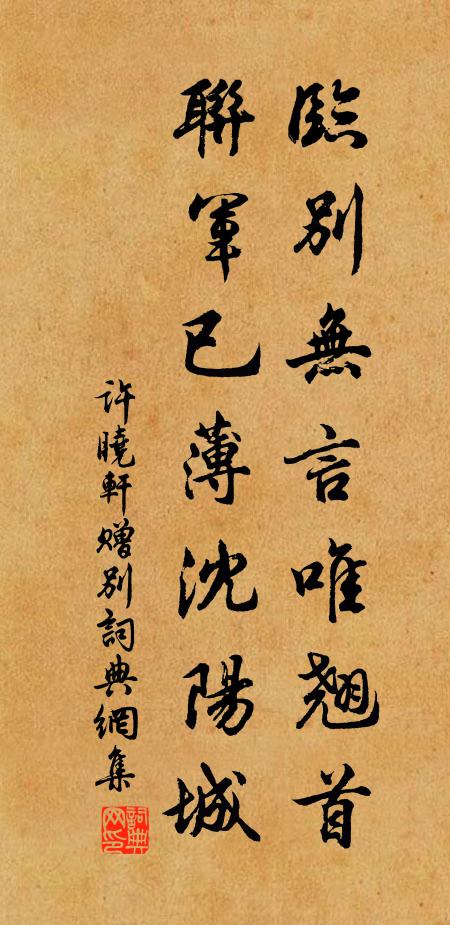 臨別無言唯翹首
聯軍已薄沈陽城
許曉軒贈別詞典網集
詞典网印